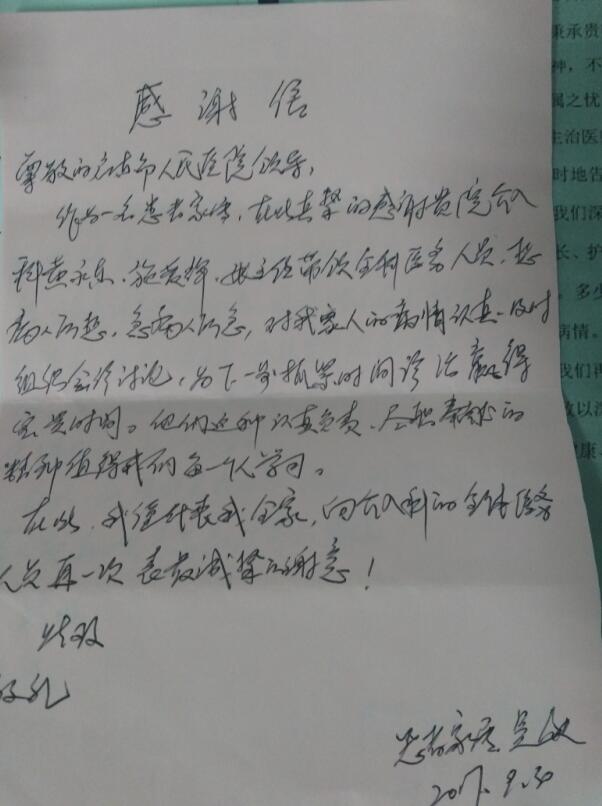 感谢信
尊敬的启东市人民医院领导,
作为一名患者家属,在此真挚的感谢贵院介入
科黄永东、施爱辉、 主任带领全科医务人员,想
病人所想,急病人所急,对我家人的病情认真、及时
组织会诊讨论,为下一步抓紧时间诊治赢得
宝贵时间。他们这种认真负责、尽职奉献的
精神值得我们每一个人学习。
在此,我谨代表我全家,向介入科的全体医务
人员再一次表最诚挚的谢意!
此致
敬礼
患者家属 吴
2017.9.30
秉承贵
神,不
属之忧
主治医
时地告
我们深
长、护
。多少
病情。
我们再
致以深
健康、